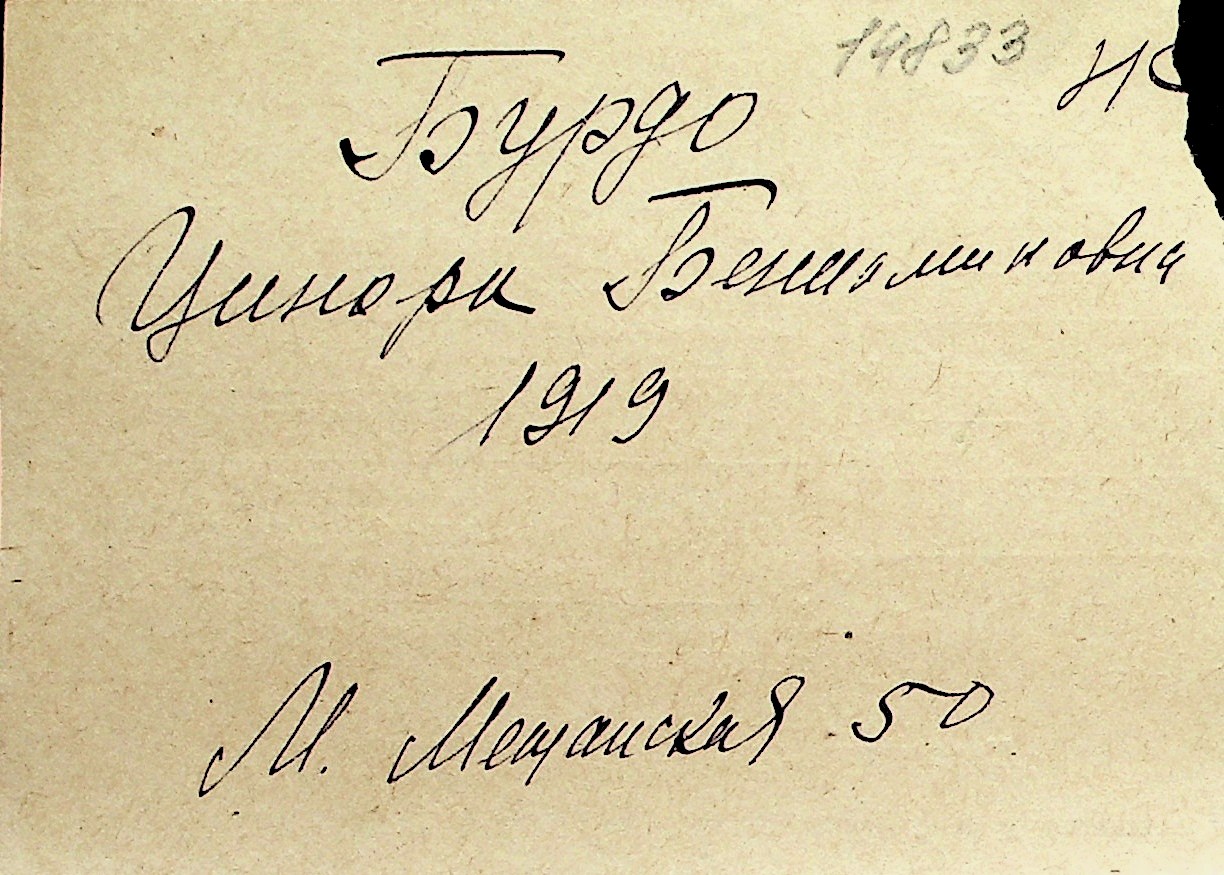 14833
Бурдо
Ципора Бениаминовна
1919
М. Мещанская 50